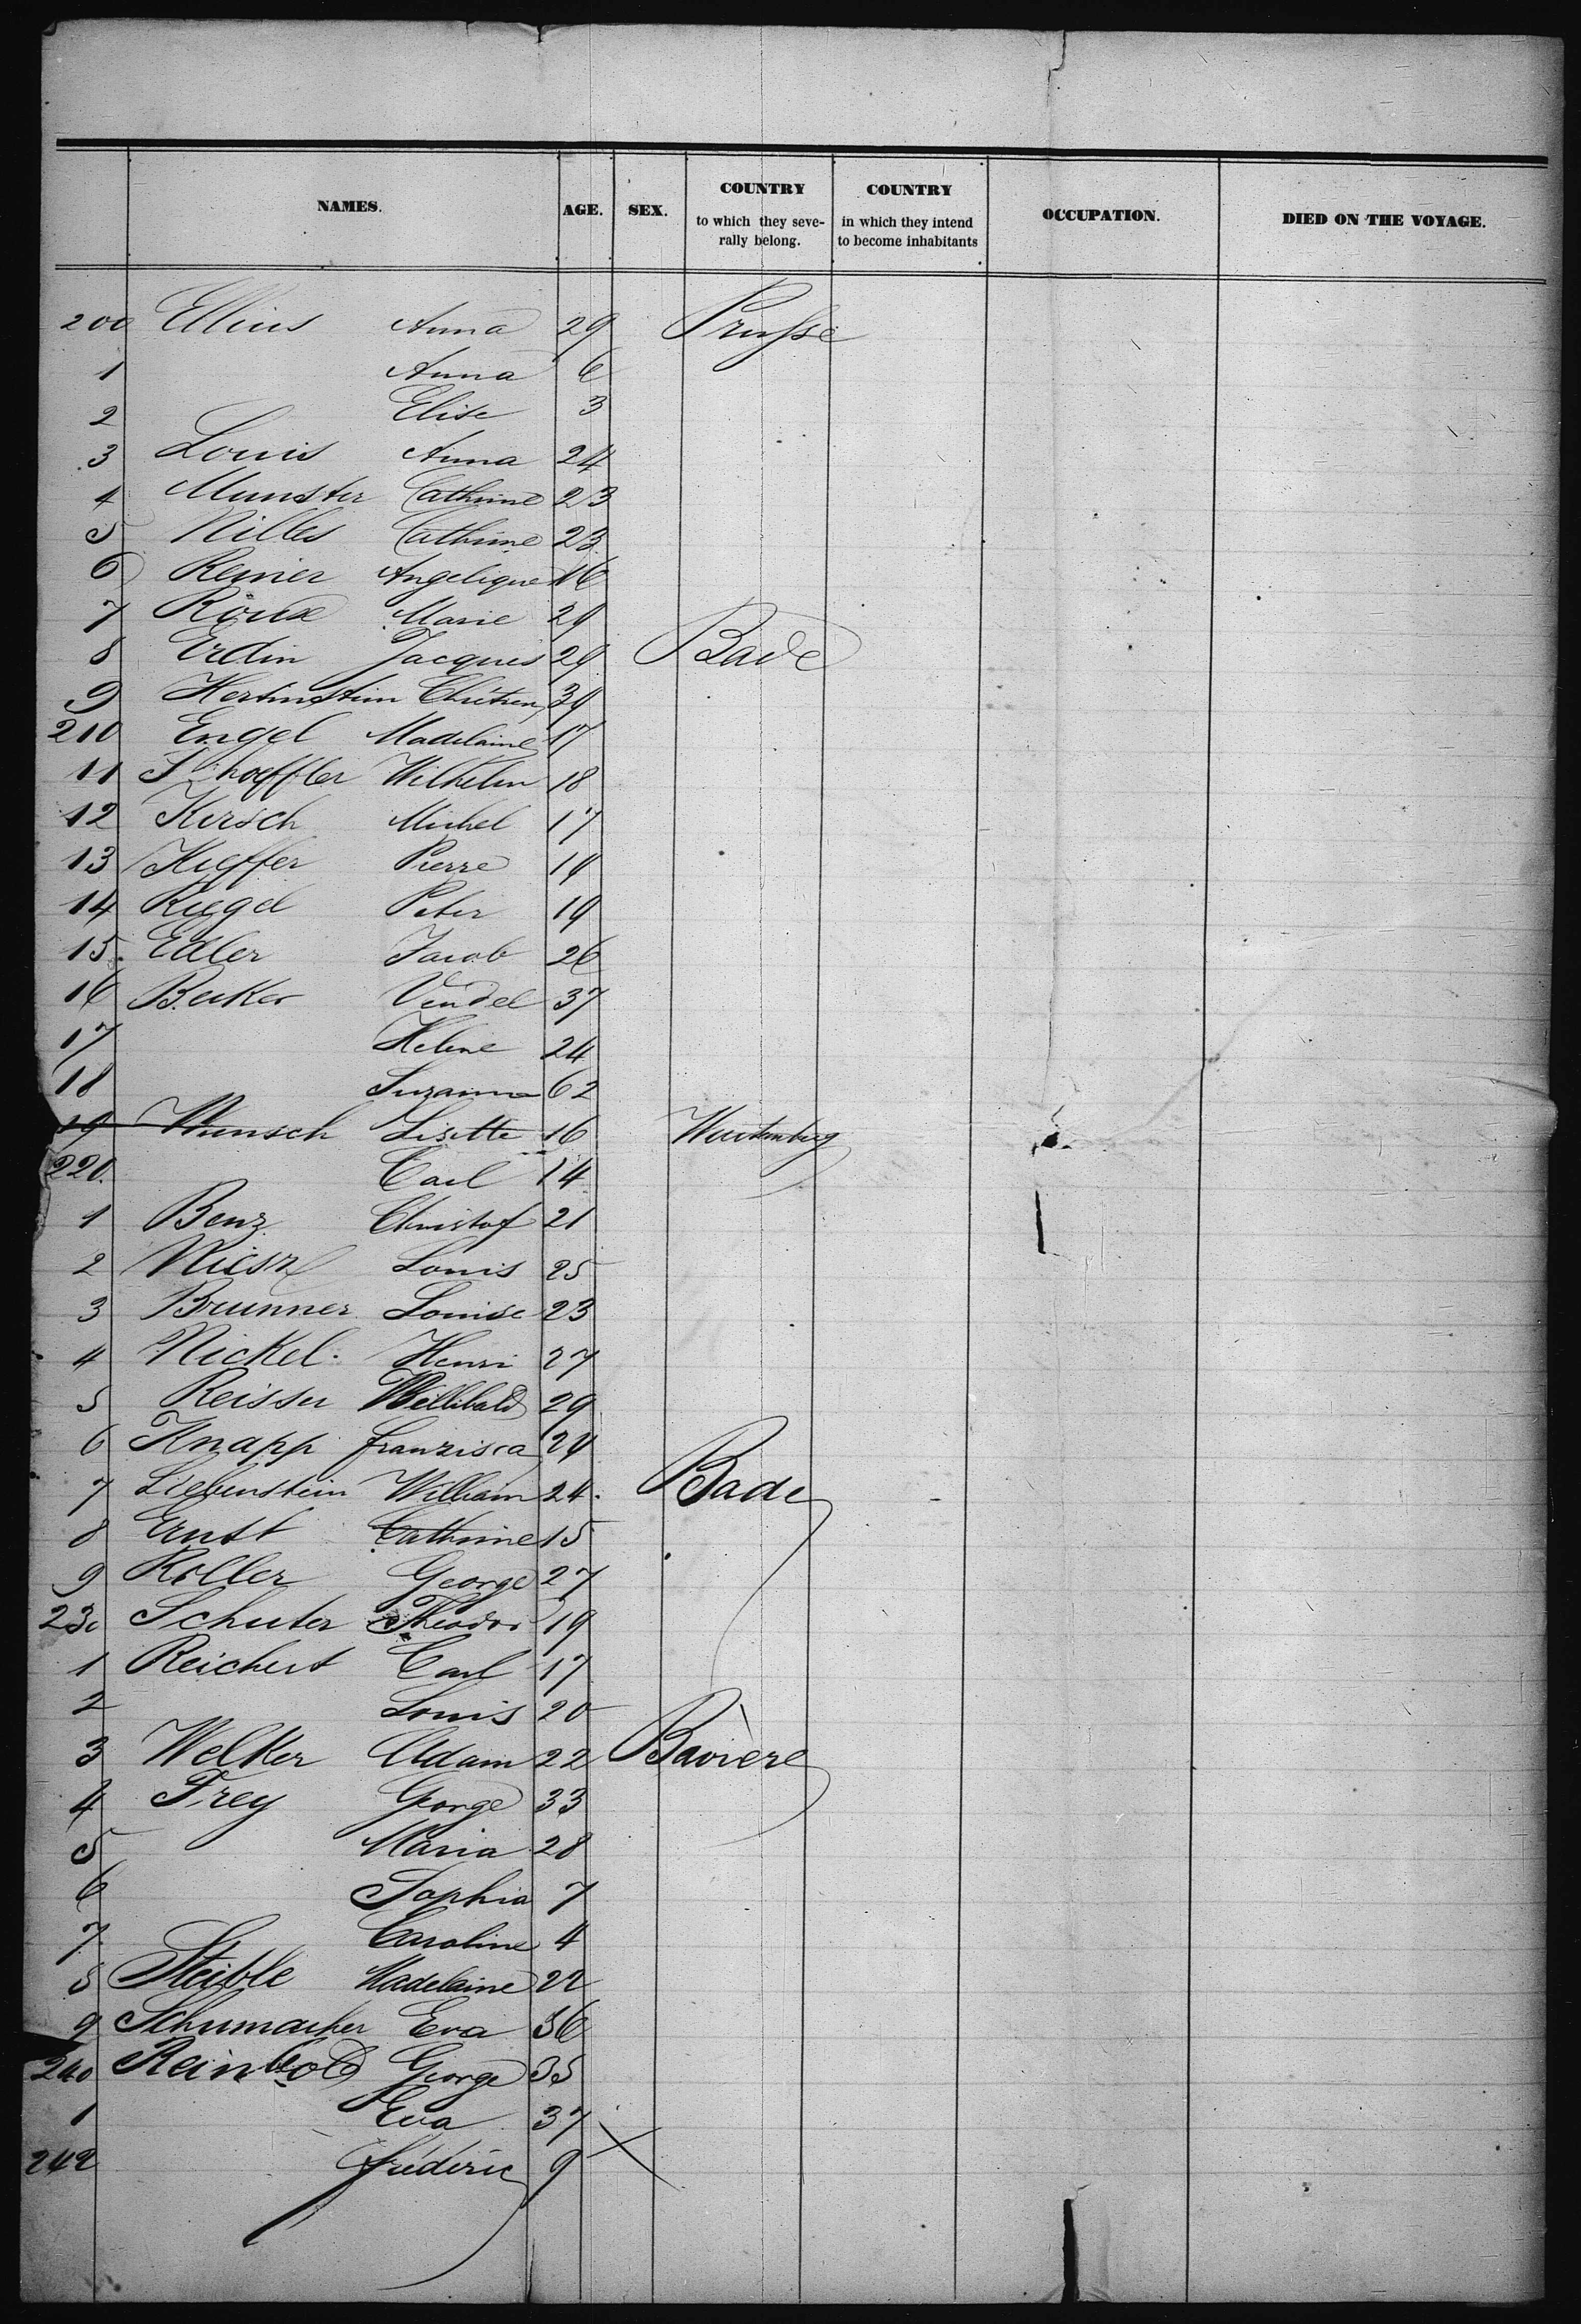 NAMES. AGE. SEX. COUNTRY to which they seve-rally belong. COUNTRY in which they intend to become inhabitants OCCUPATION. DIED ON THE VOYAGE.
200 Ellius Anna 29 Prusse
1 Anna 6
2 Elise 3
3 Louis Anna 24
4 Munster Cathrine 23
5 Nilles Cathrine 23
6 Reinier Angelique 16
7 Marie 29
8 Erdin Jacques 29 Bade
9 Chrétien 39
210 Engel Madelaine 17
11 Schoeffler Wilhelm 18
12 Kirsch Michel 17
13 Kieffer Pierre 19
14 Riegel Peter 19
15 Edler Jacob 26
16 Becker Vendel 37
17 Helene 24
18 Suzanna 62
19 Wunsch Lisette 16 Wurtemberg
220. Carl 14
1 Benz Christof 21
2 Louis 25
3 Brunner Louise 23
4 Nickel Henri 27
5 Reisser Willibald 29
6 Knapp Franzisca 24
7 Liebenstein William 24 Bade
8 Ernst Cathrine 15
9 Roller George 27
230 Schuter Theodor 19
1 Reichert Carl 17
2 Louis 20
3 Welker Adam 22 Bavière
4 Frey George 33
5 Maria 28
6 Sophia 7
7 Caroline 4
8 Steible Madelaine 22
9 Schumacher Eva 36
240 Reinbold George 35
1 Eva 37
242 Fréderic 9